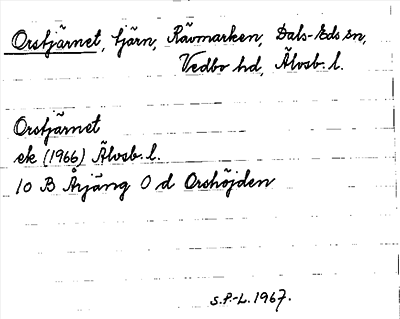 Orstjärnet, tjärn, Rävmarken, Dals-Eds sn,
Vedbo hd, Älvsb. l.
Orstjärnet
ek (1966) Älvsb. l.
10 B Årjäng 0 d Orshöjden
S.P.-L. 1967.